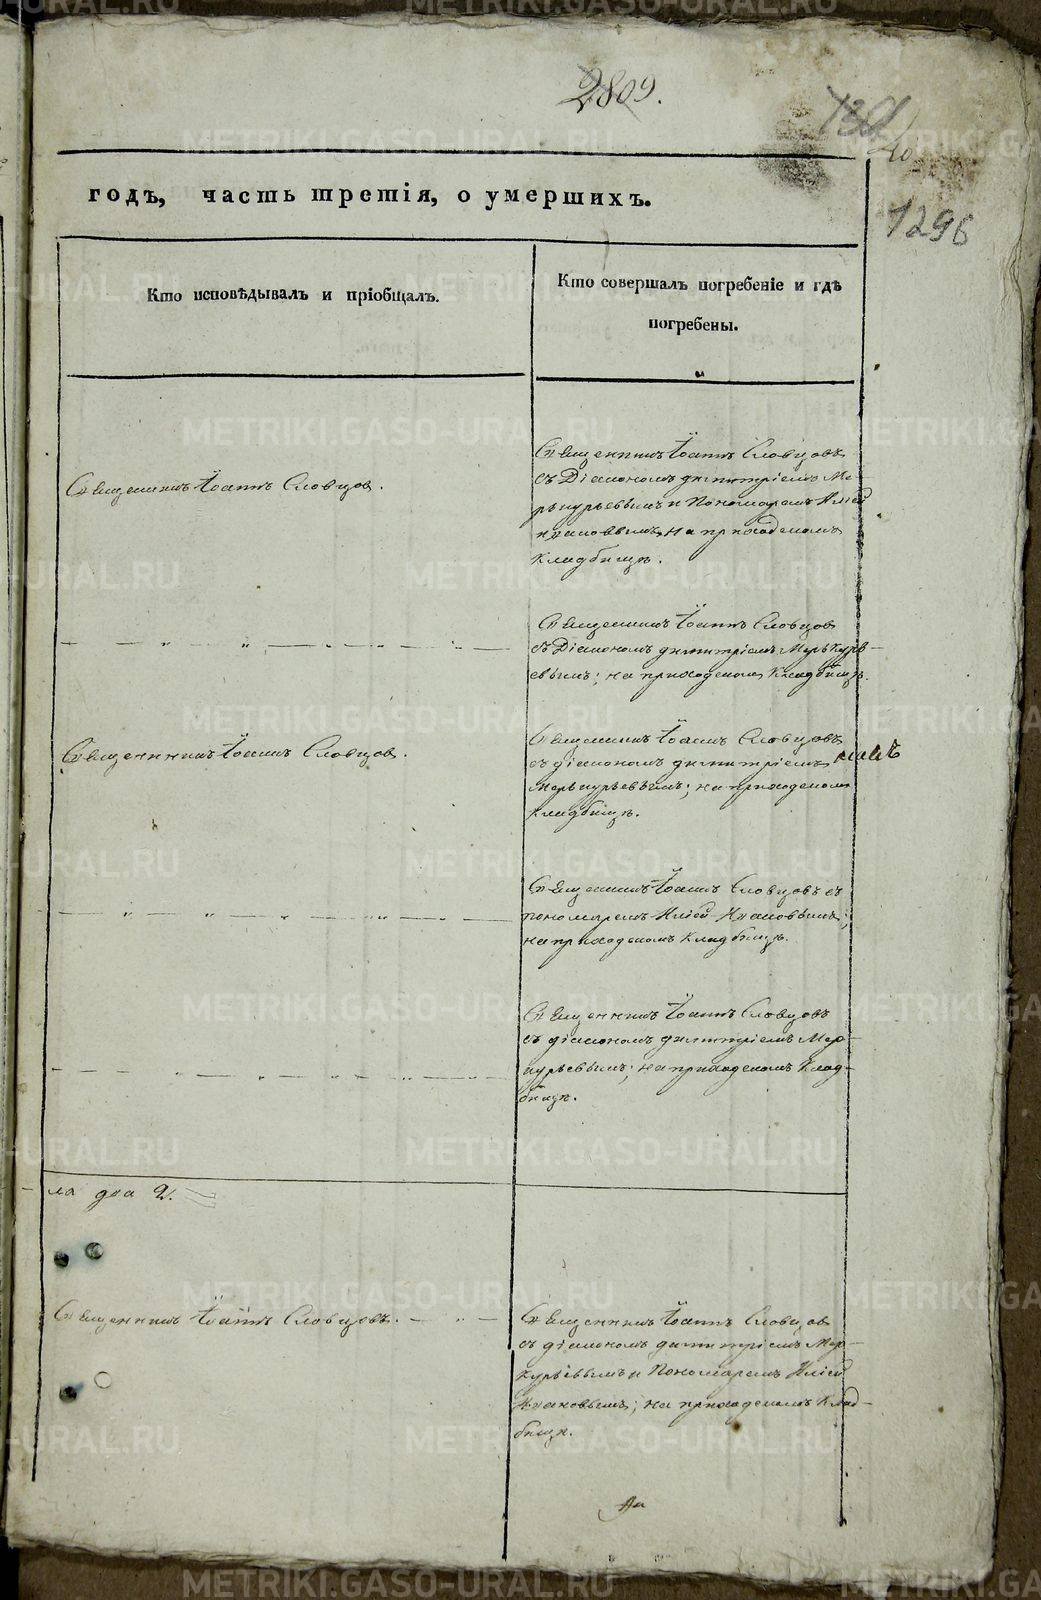 2809.
1296
годъ, часть третія, о умершихъ.
Кто исповѣдывалъ и пріобщалъ.
Кто совершалъ погребеніе и гдѣ
погребены.
Священникъ Іоаннъ Словцов.
Священникъ Іоаннъ Словцовъ
съ Діакономъ Димитріемъ Ме-
ркурьевымъ и Пономаремъ Иліей
Ивановымъ, на приходскомъ
кладбищѣ.
Священникъ Іоаннъ Словцов
съ Діакономъ Димитріемъ Меркурь-
евымъ; на приходскомъ кладбищѣ.
Священникъ Іоаннъ Словцов.
Священникъ Іоаннъ Словцовъ
съ діакономъ Димитріемъ
Меркурьевымъ; на приходскомъ
кладбищѣ.
Священникъ Іоаннъ Словцовъ съ
пономаремъ Иліей Ивановымъ;
на приходскомъ кладбищѣ.
Священникъ Іоаннъ Словцовъ
съ діакономъ Димитріемъ Мер-
курьевымъ; на приходскомъ клад-
бищѣ.
ла два 2.
Священникъ Іоаннъ Словцовъ.
Священникъ Іоаннъ Словцов
съ діакономъ Димитріемъ Мер-
курьевымъ и Пономаремъ Иліей
Ивановымъ; на приходскомъ клад-
бищѣ.
METRIKI.GASO-URAL.RU